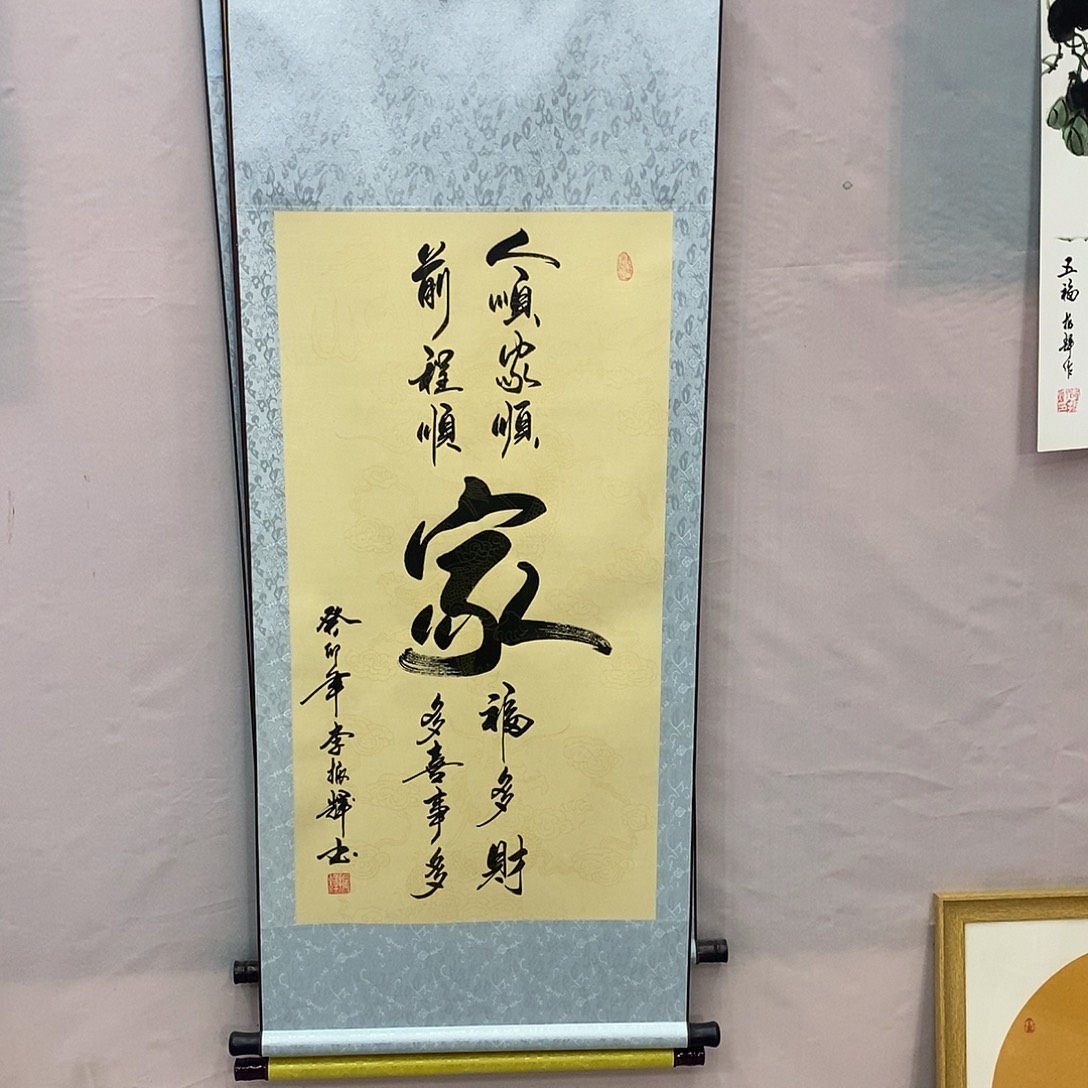 人順家順
前程順
家
福多財
多喜事多
癸卯年李振輝书
五福 振輝作